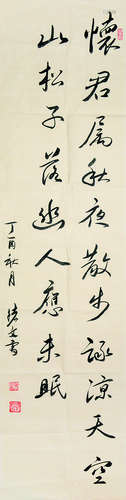 懷君屬秋夜散步詠涼天空
山松子落幽人應未眠
丁酉秋月